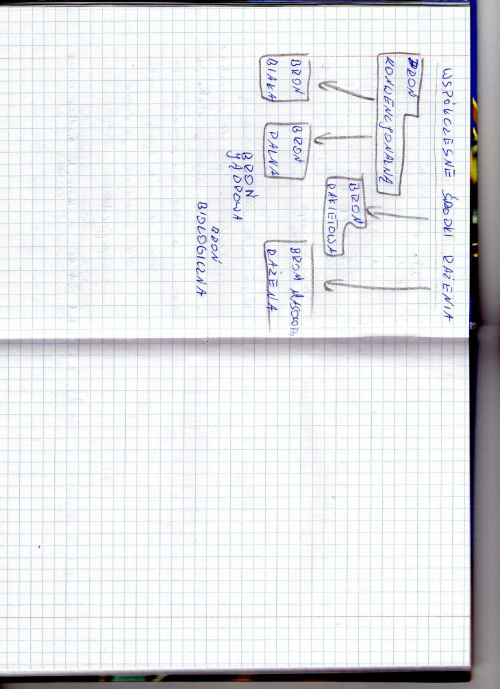 WSPÓŁCZESNE ŚRODKI RAŻENIA
BROŃ
KONWENCJONALNA
BROŃ
RAKIETOWA
BROŃ
BIAŁA
BROŃ
PALNA
BROŃ MASOWE
RAŻENA
BROŃ
JĄDROWA
BROŃ
BIOLOGICZNA